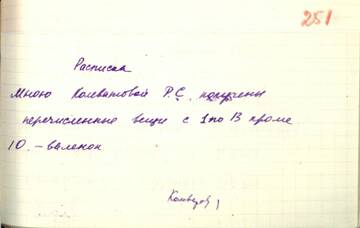 251
Расписка
Мною Колеватовой Р.С. получены
перечисленные вещи с 1 по 13 кроме
10. – валенок